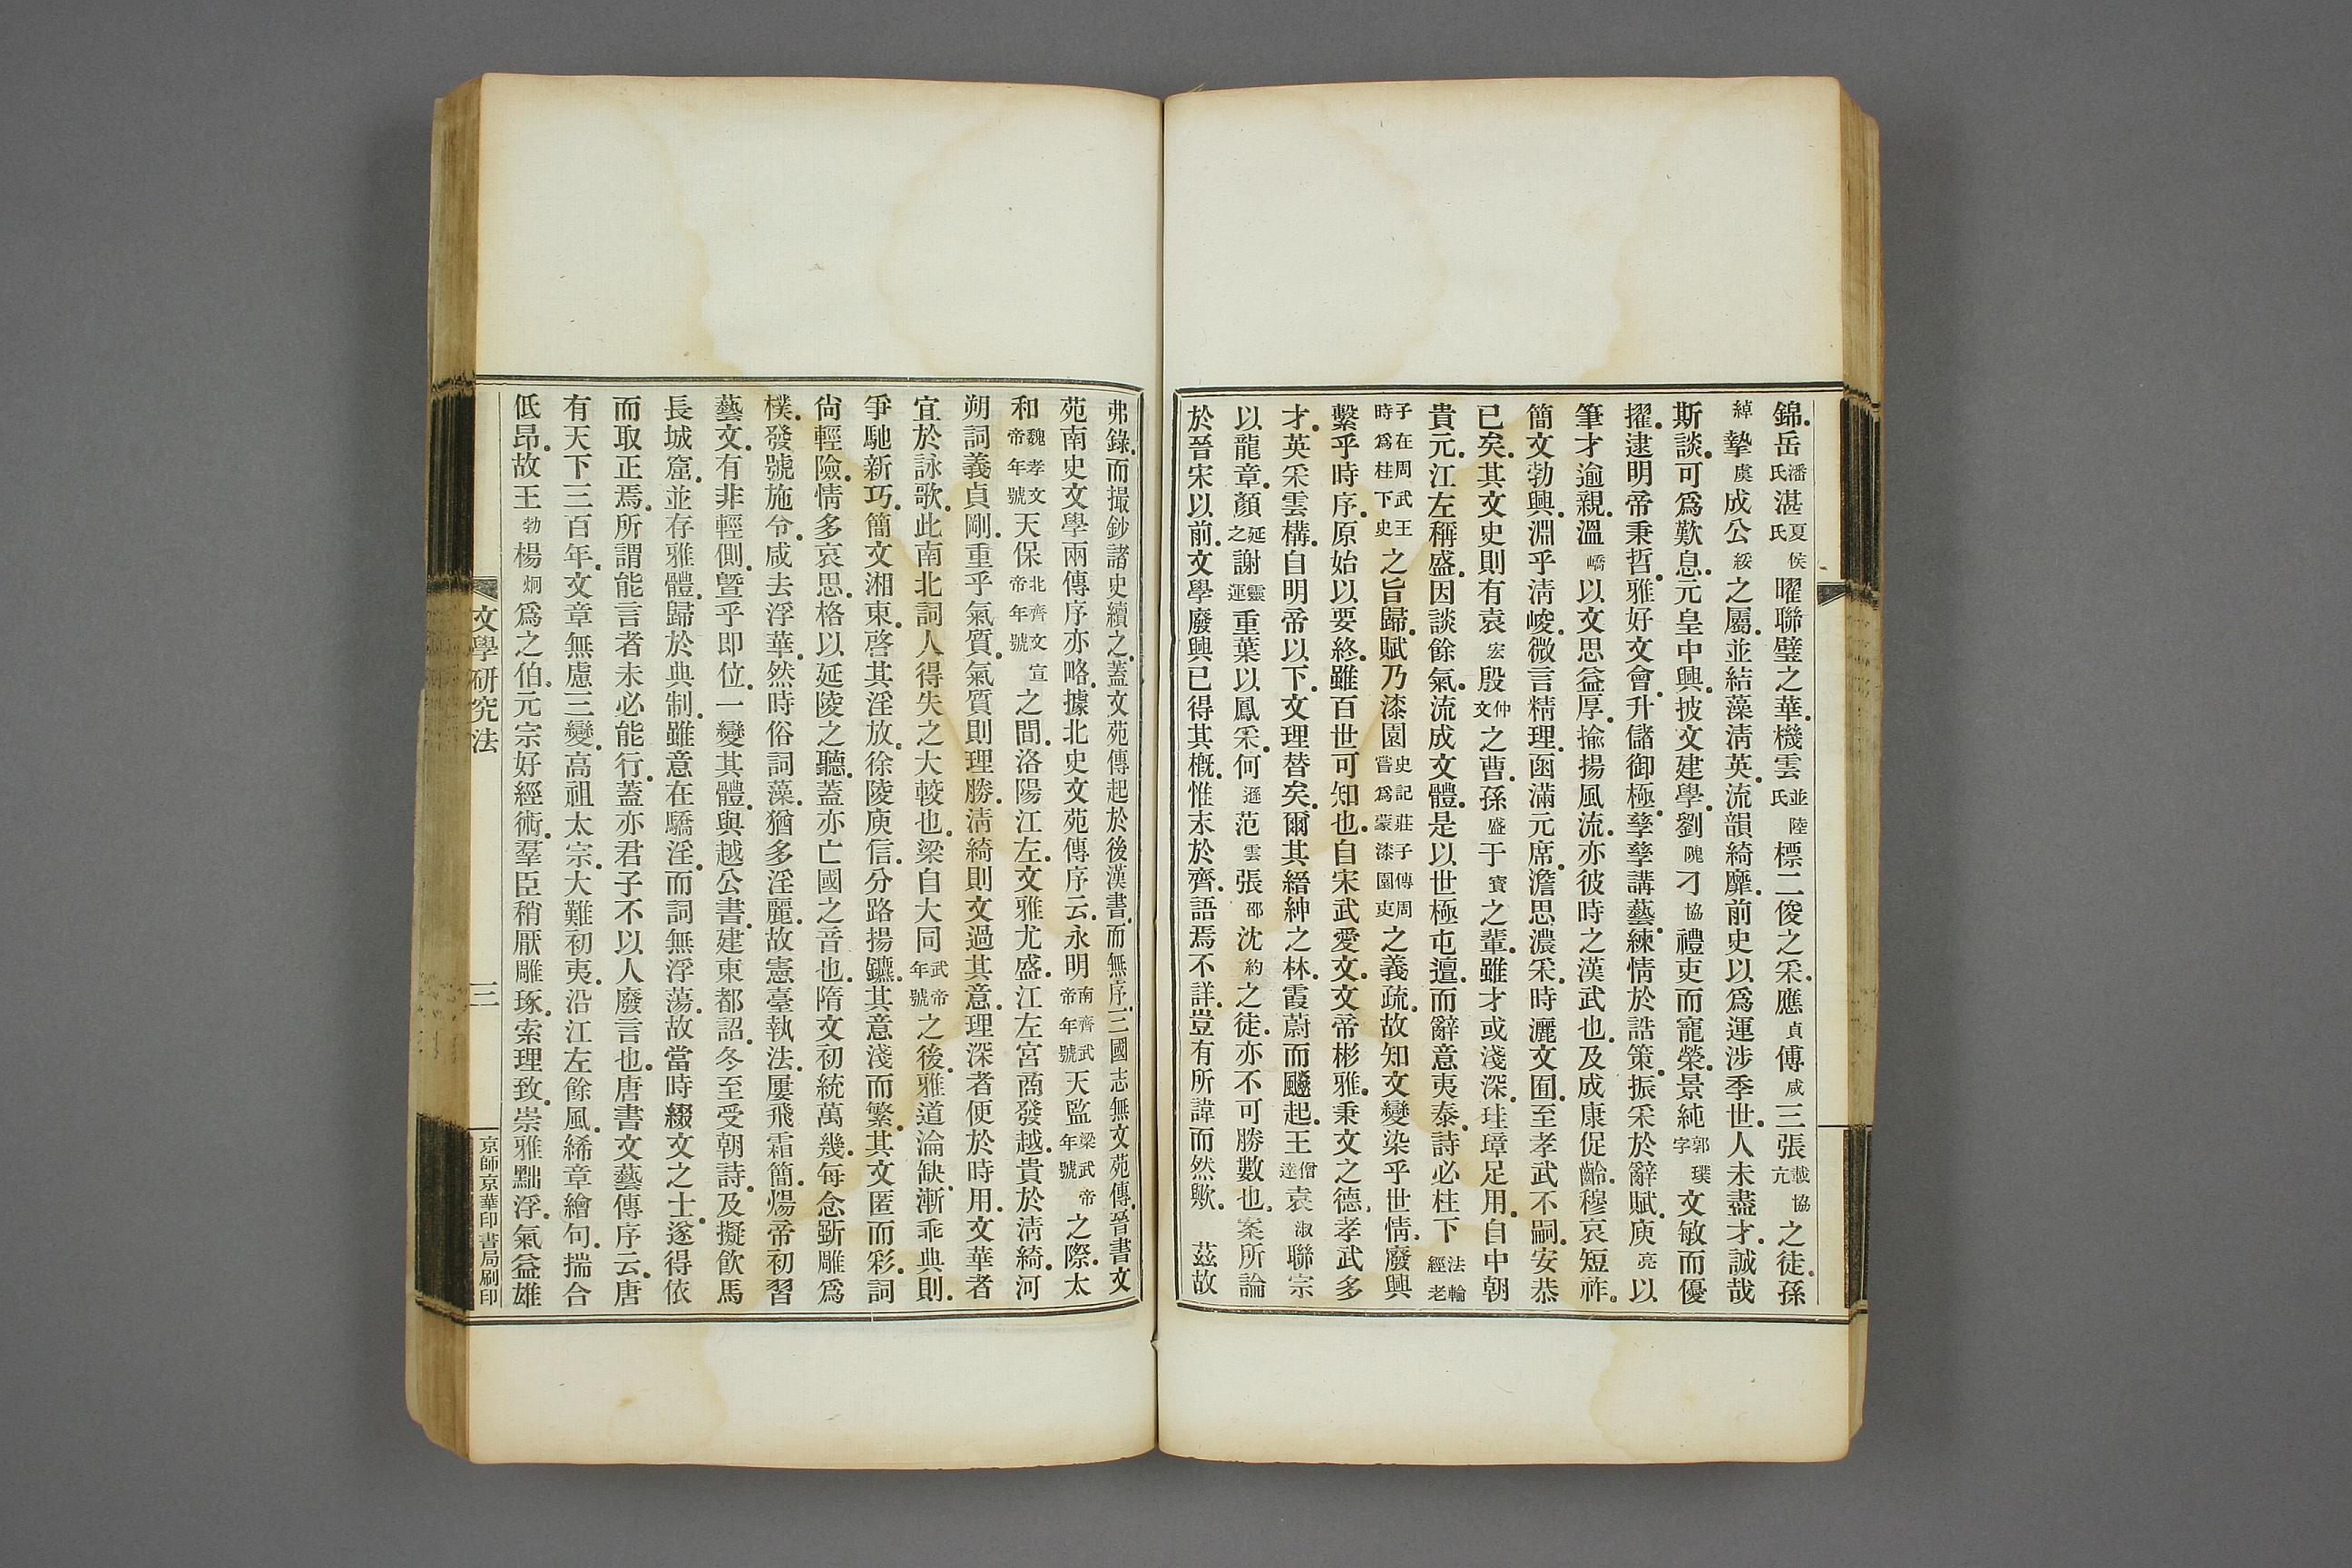 錦。岳潘氏湛夏侯氏曜聯璧之華。機雲並陸氏標二俊之采。應貞傅咸三張載協亢之徒。孫
綽摯虞成公綏之屬。並結藻淸英。流韻綺靡。前史以爲運涉季世。人未盡才。誠哉
斯談。可爲歎息。元皇中興。披文建學。劉隗刁協禮吏而寵榮。景純郭璞字文敏而優
擢。逮明帝秉哲。雅好文會。升儲御極。孳孳講藝。練情於誥策。振采於辭賦。庾亮以
筆才逾親。溫嶠以文思益厚。揄揚風流。亦彼時之漢武也。及成康促齡。穆哀短祚。
簡文勃興。淵乎淸峻。微言精理。函滿元席。澹思濃采。時灑文囿。至孝武不嗣。安恭
已矣。其文史則有袁宏殷仲文之曹。孫盛于寶之輩。雖才或淺深。珪璋足用。自中朝
貴元。江左稱盛。因談餘氣。流成文體。是以世極屯邅。而辭意夷泰。詩必柱下法輪經老
子在周武王時爲柱下史之旨歸。賦乃漆園史記莊子傳周嘗爲蒙漆園吏之義疏。故知文變染乎世情。廢興
繫乎時序。原始以要終。雖百世可知也。自宋武愛文。文帝彬雅。秉文之德。孝武多
才。英采雲構。自明帝以下。文理替矣。爾其縉紳之林。霞蔚而飈起。王僧達袁淑聯宗
以龍章。顏延之謝靈運重葉以鳳采。何遜范雲張邵沈約之徒。亦不可勝數也。案所論
於晉宋以前。文學廢興已得其槪。惟末於齊。語焉不詳。豈有所諱而然歟。 茲故
弗錄。而撮鈔諸史續之。蓋文苑傳起於後漢書。而無序。三國志無文苑傳。晉書文
苑南史文學兩傳序亦略。據北史文苑傳序云。永明南齊武帝年號天監梁武帝年號之際。太
和魏孝文帝年號天保北齊文宣帝年號之間。洛陽江左。文雅尤盛。江左宮商發越。貴於淸綺。河
朔詞義貞剛。重乎氣質。氣質則理勝。淸綺則文過其意。理深者便於時用。文華者
宜於詠歌。此南北詞人得失之大較也。梁自大同武帝年號之後。雅道淪缺。漸乖典則。
爭馳新巧。簡文湘東。啓其淫放。徐陵庾信。分路揚鑣。其意淺而繁。其文匿而彩。詞
尙輕險。情多哀思。格以延陵之聽。蓋亦亡國之音也。隋文初統萬幾。每念斲雕爲
樸。發號施令。咸去浮華。然時俗詞藻。猶多淫麗。故憲臺執法。屢飛霜簡。煬帝初習
藝文。有非輕側。曁乎即位。一變其體。與越公書。建東都詔。冬至受朝詩。及擬飮馬
長城窟。並存雅體。歸於典制。雖意在驕淫。而詞無浮蕩。故當時綴文之士。遂得依
而取正焉。所謂能言者未必能行。蓋亦君子不以人廢言也。唐書文藝傳序云。唐
有天下三百年。文章無慮三變。高祖太宗。大難初夷。沿江左餘風。絺章繪句。揣合
低昂。故王勃楊炯爲之伯。元宗好經術。羣臣稍厭雕琢。索理致。崇雅黜浮。氣益雄
文學研究法
三
京師京華印書局刷印